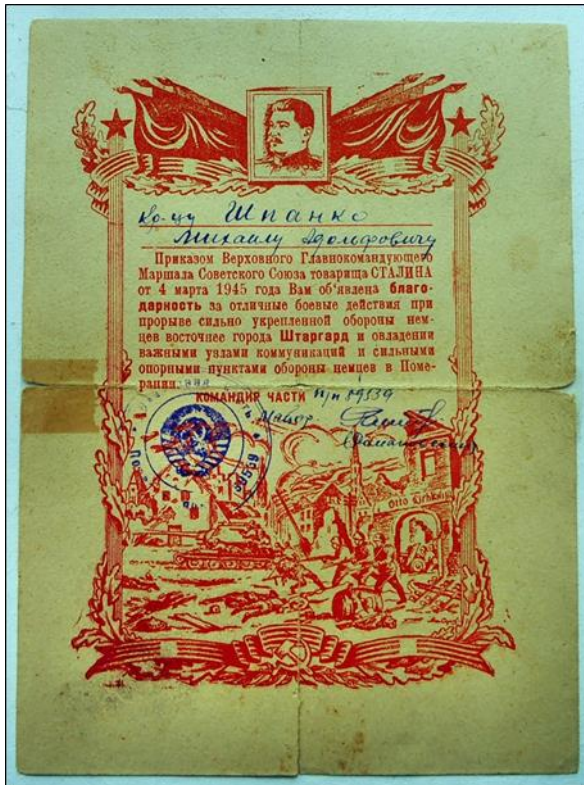 Кр-цу Шпанко
Михаилу Адольфовичу
Приказом Верховного Главнокомандующего
Маршала Советского Союза товарища СТАЛИНА
от 4 марта 1945 года Вам об‘явлена благо-
дарность за отличные боевые действия при
прорыве сильно укрепленной обороны нем-
цев восточнее города Штаргард и овладении
важными узлами коммуникаций и сильными
опорными пунктами обороны немцев в Поме-
рании.
КОМАНДИР ЧАСТИ п/п 39539
Майор
39539
Otto